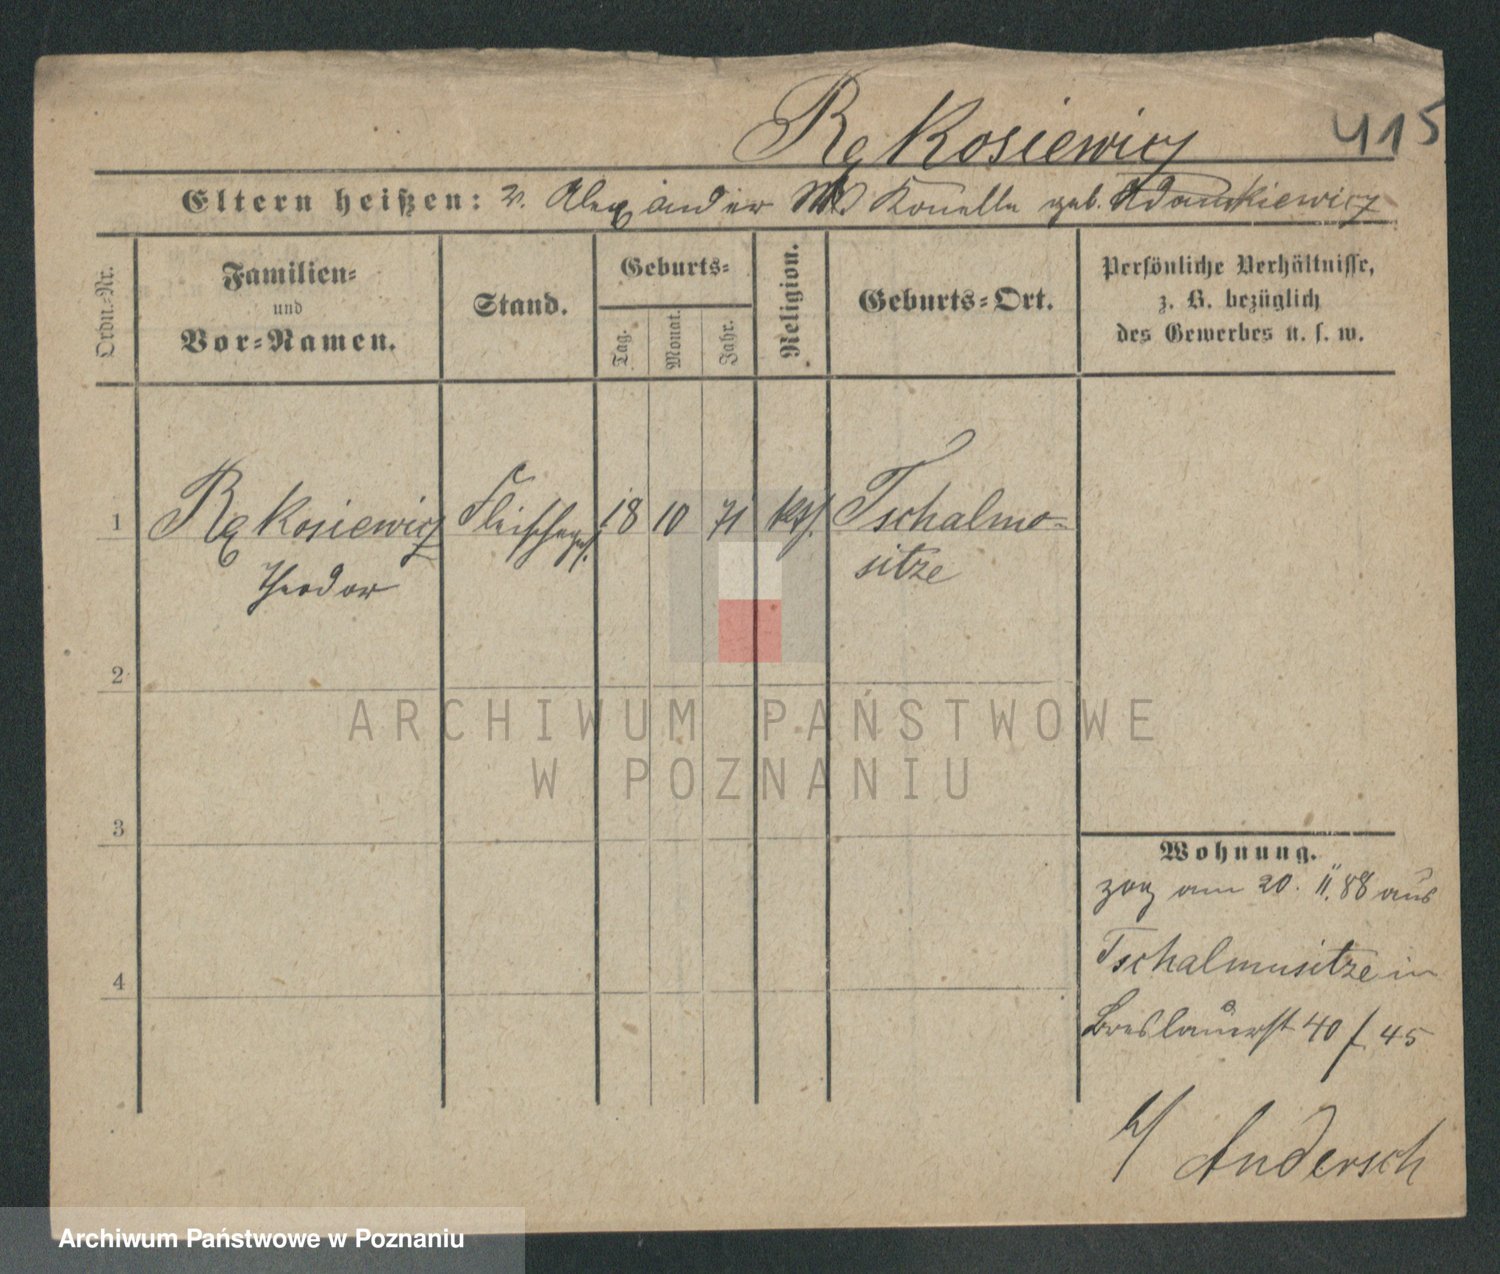 Rąkosiewicz
415
Eltern heißen: v. Alexander M. Konella geb. Adamkiewicz
Ordn.-Nr.
Familien-
und
Vor-Namen.
Stand.
Geburts-
Tag.
Monat.
Jahr.
Religion.
Geburts-Ort.
Persönliche Verhältnisse,
z. B. bezüglich
des Gewerbes u. s. w.
1
Rąkosiewicz
Theodor
Fleischerges.
18
10
71
kath.
Tschalmo-
sitze
2
3
4
Wohnung.
zog am 20. II. 88 aus
Tschalmusitze in
Breslauerst 40 / 45
b/ Andersch
ARCHIWUM PAŃSTWOWE
W POZNANIU
Archiwum Państwowe w Poznaniu